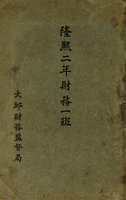 隆熙二年財務一班
大邱財務監督局